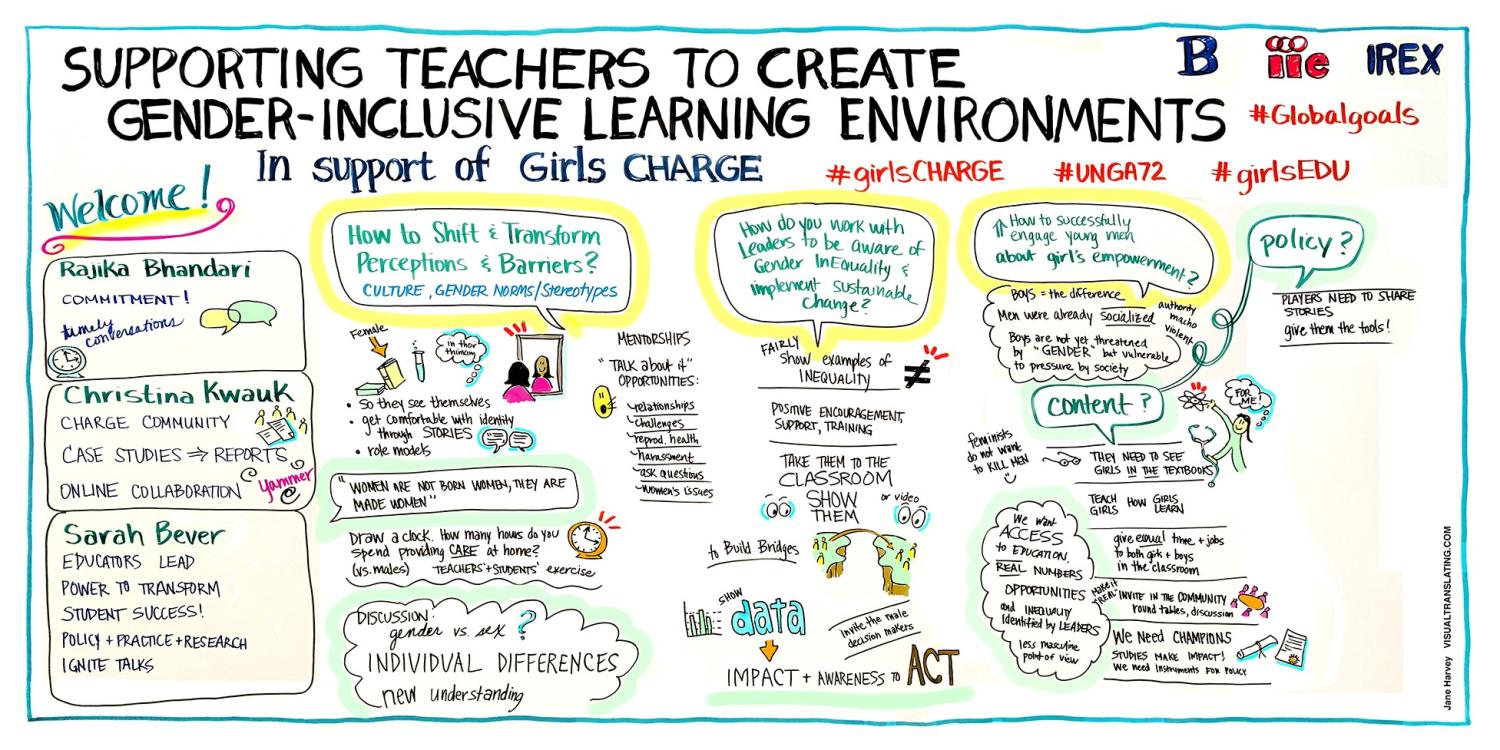 SUPPORTING TEACHERS TO CREATE
GENDER-INCLUSIVE LEARNING ENVIRONMENTS
B iie IREX
#Globalgoals
In support of Girls CHARGE
#girlsCHARGE #UNGA72 #girlsEDU
Welcome!
Rajika Bhandari
COMMITMENT!
timely
conversations
Christina Kwauk
CHARGE COMMUNITY
CASE STUDIES ⇒ REPORTS
ONLINE COLLABORATION
yammer
Sarah Bever
EDUCATORS LEAD
POWER TO TRANSFORM
STUDENT SUCCESS!
POLICY + PRACTICE + RESEARCH
IGNITE TALKS
How to Shift & Transform
Perceptions & Barriers?
CULTURE, GENDER NORMS/Stereotypes
Female
in their
thinking
• So they see themselves
• get comfortable with identity
through STORIES
• role models
MENTORSHIPS
"TALK about it"
OPPORTUNITIES:
relationships
challenges
reprod. health
harassment
ask questions
women's issues
"WOMEN ARE NOT BORN WOMEN, THEY ARE
MADE WOMEN"
Draw a clock. How many hours do you
spend providing CARE at home?
(vs. males) TEACHERS' + STUDENTS' exercise
DISCUSSION:
gender vs. sex ?
INDIVIDUAL DIFFERENCES
new understanding
How do you work with
Leaders to be aware of
Gender InEquality &
implement sustainable
change?
FAIRLY
Show examples of
INEQUALITY
≠
POSITIVE ENCOURAGEMENT,
SUPPORT, TRAINING
TAKE THEM TO THE
CLASSROOM
SHOW
THEM
or video
to Build Bridges
SHOW
data
Invite the male
decision makers
IMPACT + AWARENESS to ACT
How to successfully
engage young men
about girl's empowerment?
BOYS = the difference
Men were already Socialized
authority
macho
violent
Boys are not yet threatened
by "GENDER" but vulnerable
to pressure by society
content?
feminists
do not want
to KILL MEN
FOR
ME!
THEY NEED TO SEE
GIRLS IN THE TEXTBOOKS
TEACH HOW GIRLS
GIRLS LEARN
give equal time + jobs
to both girls + boys
in the classroom
make it
"REAL"
INVITE IN THE COMMUNITY
round tables, discussion
We Need CHAMPIONS
STUDIES MAKE IMPACT!
We need Instruments FOR POLICY
We want
ACCESS
to EDUCATION,
REAL NUMBERS
OPPORTUNITIES
and INEQUALITY
identified by LEADERS
less masculine
point of view
policy?
PLAYERS NEED TO SHARE
STORIES
give them the tools!
Jane Harvey VISUALTRANSLATING.COM